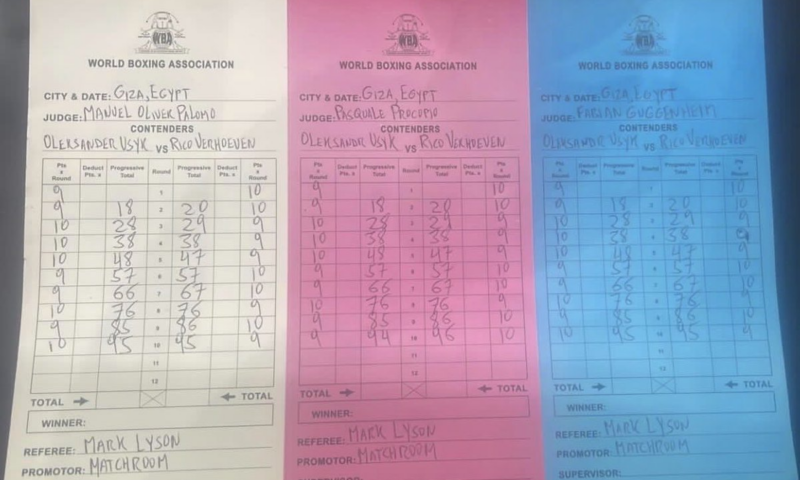 WBA
WORLD BOXING ASSOCIATION
CITY & DATE: GIZA, EGYPT
JUDGE: MANUEL OLIVER PALOMO
CONTENDERS
OLEKSANDER USYK VS RICO VERHOEVEN
Pts x Round Deduct Pts. x Progressive Total Round Progressive Total Deduct Pts. x Pts x Round
9 1 10
9 18 2 20 10
10 28 3 29 9
10 38 4 38 9
10 48 5 47 9
9 57 6 57 10
9 66 7 67 10
10 76 8 76 9
9 85 9 86 10
10 95 10 95 9
11
12
TOTAL TOTAL
WINNER:
REFEREE: MARK LYSON
PROMOTOR: MATCHROOM
WBA
WORLD BOXING ASSOCIATION
CITY & DATE: GIZA, EGYPT
JUDGE: PASQUALE PROCOPIO
CONTENDERS
OLEKSANDR USYK VS RICO VERHOEVEN
Pts x Round Deduct Pts. x Progressive Total Round Progressive Total Deduct Pts. x Pts x Round
9 1 10
9 18 2 20 10
10 28 3 29 9
10 38 4 38 9
10 48 5 47 9
9 57 6 57 10
9 66 7 67 10
10 76 8 76 9
9 85 9 86 10
9 94 10 96 10
11
12
TOTAL TOTAL
WINNER:
REFEREE: MARK LYSON
PROMOTOR: MATCHROOM
WBA
WORLD BOXING ASSOCIATION
CITY & DATE: GIZA, EGYPT
JUDGE: FABIAN GUGGENHEIM
CONTENDERS
OLEKSANDR USYK VS RICO VERHOEVEN
Pts x Round Deduct Pts. x Progressive Total Round Progressive Total Deduct Pts. x Pts x Round
9 1 10
9 18 2 20 10
10 28 3 29 9
10 38 4 38 9
10 48 5 47 9
9 57 6 57 10
9 66 7 67 10
10 76 8 76 9
9 85 9 86 10
10 95 10 95 9
11
12
TOTAL TOTAL
WINNER:
REFEREE: MARK LYSON
PROMOTOR: MATCHROOM
SUPERVISOR: